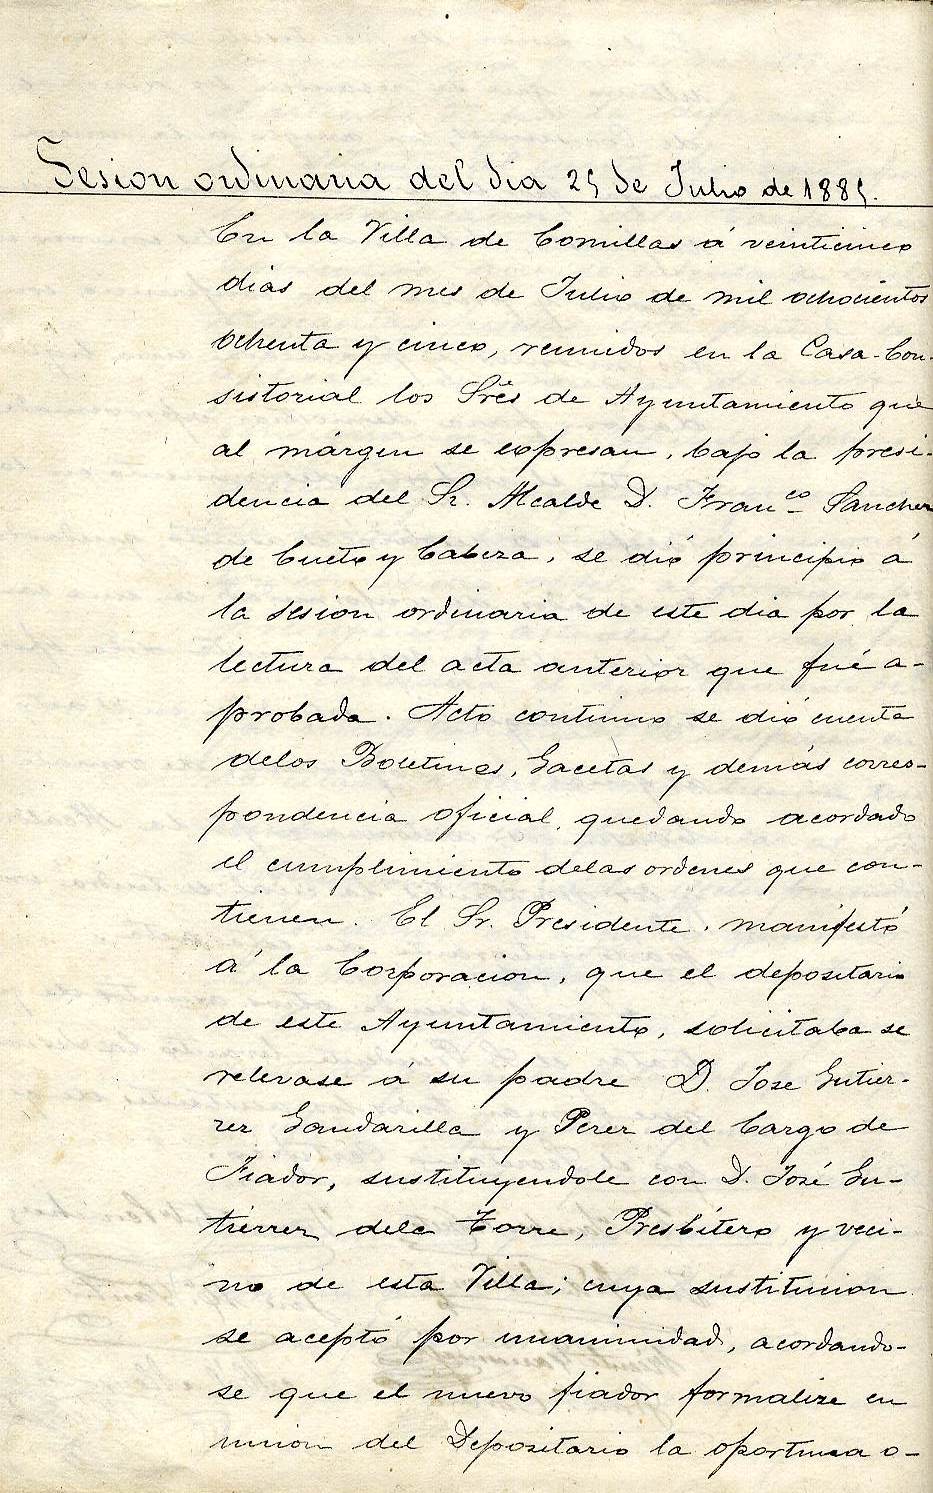 Sesion ordinaria del dia 25 de Julio de 1885.
En la Villa de Comillas á veinticinco
dias del mes de Julio de mil ochocientos
ochenta y cinco, reunidos en la Casa-Con-
sistorial los Sres de Ayuntamiento que
al márgen se expresan, bajo la presi-
dencia del Sr. Alcalde D. Franco Sanchez
de Cueto y Cabeza, se dió principio á
la sesion ordinaria de este dia por la
lectura del acta anterior que fué a-
probada. Acto continuo se dió cuenta
delos Boletines, Gacetas y demás corres-
pondencia oficial, quedando acordado
el cumplimiento delas ordenes que con-
tienen. El Sr. Presidente, manifestó
á la Corporacion, que el depositario
de este Ayuntamiento, solicitaba se
relevase á su padre D. Jose Gutier-
rez Gandarilla y Perez del Cargo de
Fiador, sustituyendole con D. José Gu-
tierrez dela Torre, Presbítero y veci-
no de esta Villa; cuya sustitucion
se aceptó por unanimidad, acordando-
se que el nuevo fiador formalize en
union del Depositario la oportuna o-